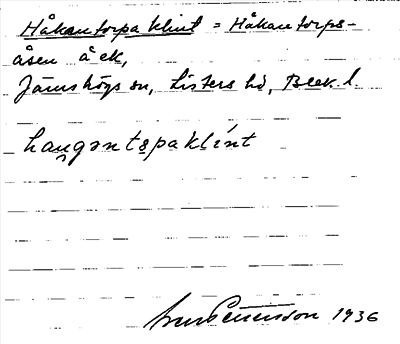 Håkantorpa klint = Håkantorps-
åsen å ek,
Jämshögs sn, Listers hd, Blek. l.
haŋgəntspaklínt
1936